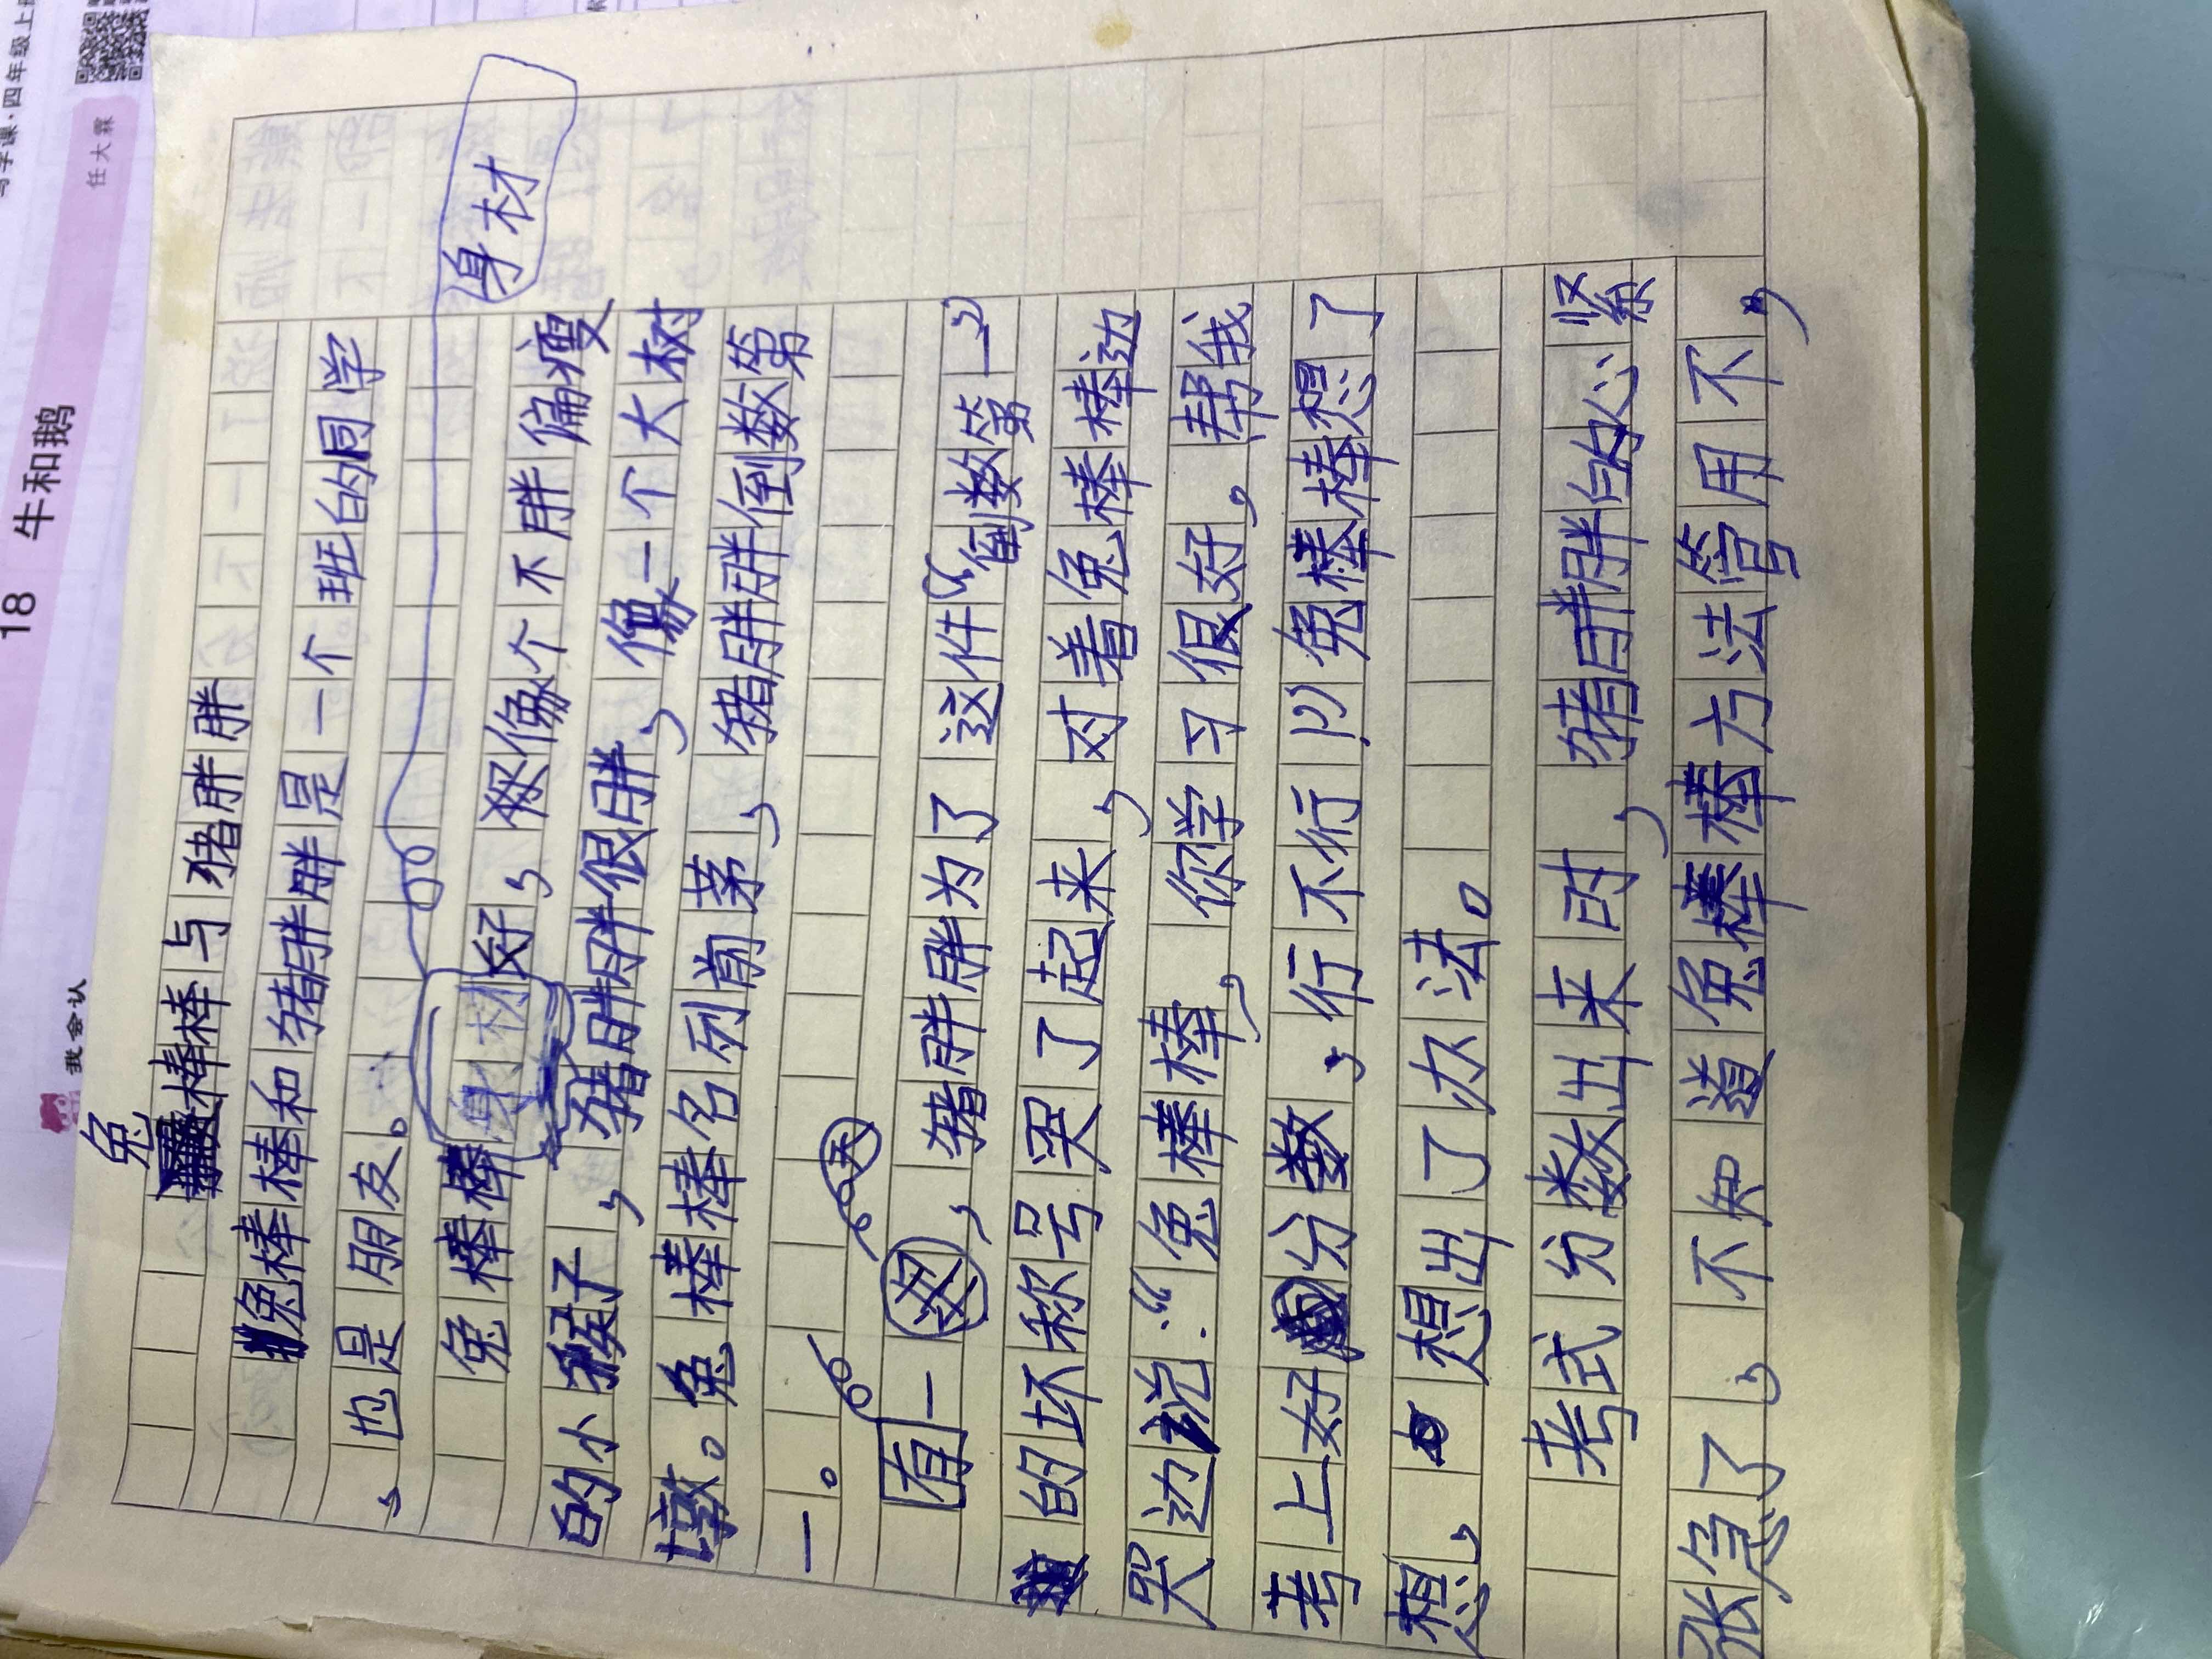 写字课·四年级上册
任大霖
18 牛和鹅
我会认
兔
棒棒与猪胖胖
兔棒棒和猪胖胖是一个班的同学
，也是朋友。
身材
兔棒棒身材好，好像个不胖偏瘦
的小猴子，猪胖胖很胖，像一个大树
墩。兔棒棒名列前茅，猪胖胖倒数第
一。
天
有一，猪胖胖为了这件“倒数第一”
的坏称号哭了起来，对着兔棒棒边
哭边说：“兔棒棒，你学习很好，帮我
考上好分数，行不行？”兔棒棒想了
想，想出了办法。
考式分数出来时，猪胖胖的心紧
张急了，不知道兔棒棒方法管用不，